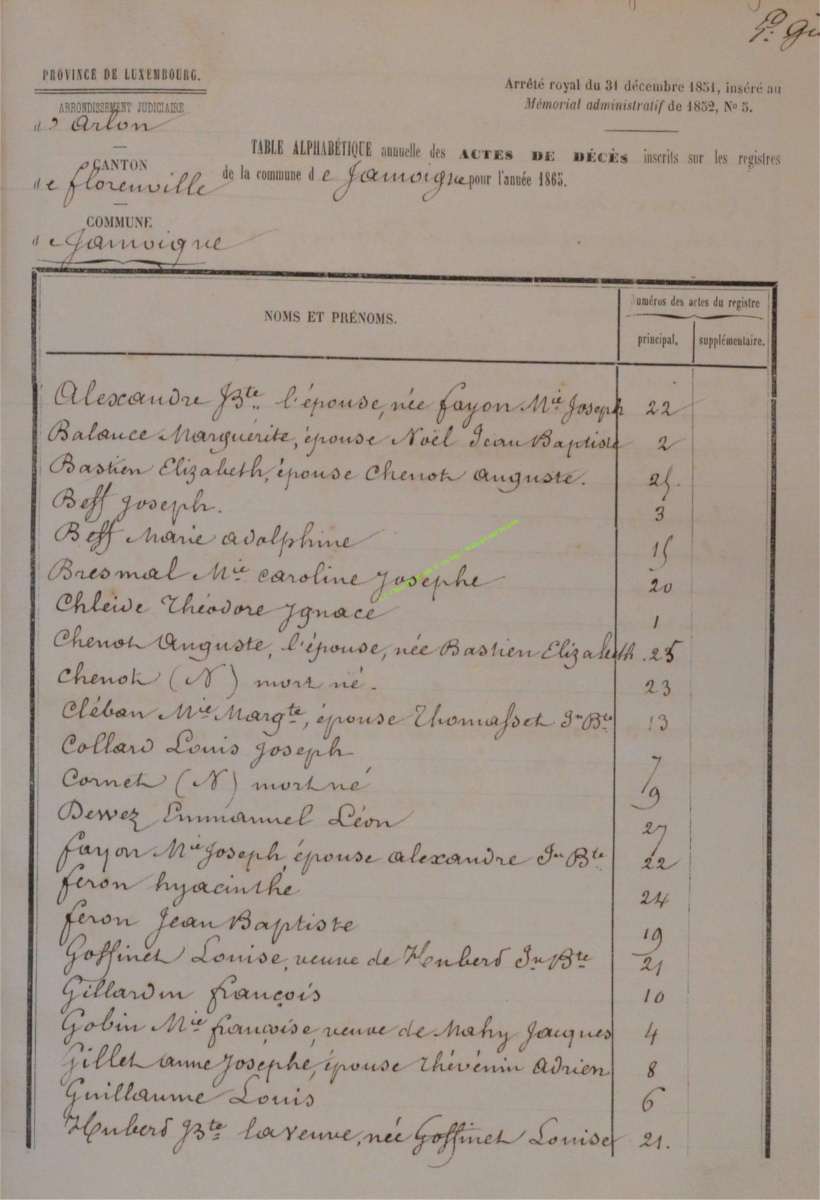 PROVINCE DE LUXEMBOURG.
ARRONDISSEMENT JUDICIAIRE
d' arlon
CANTON
de florenville
COMMUNE
de Jamoigne
Arrêté royal du 31 décembre 1851, inséré au
Mémorial administratif de 1852, No 5.
TABLE ALPHABÉTIQUE annuelle des ACTES DE DÉCÈS inscrits sur les registres
de la commune de Jamoigne pour l'année 1865.
NOMS ET PRÉNOMS.
Numéros des actes du registre
principal. supplémentaire.
Alexandre JBte l'épouse, née fayon Mie Joseph 22
Balance Marguérite, épouse Noël Jean Baptiste 2
Bastien Elizabeth, épouse Chenot auguste. 25.
Beff Joseph. 3
Beff Marie adolphine 15
Bresmal Mie caroline Josephe 20
Chleide Théodore Ignace 1
Chenot auguste, l'épouse, née Bastien Elizabeth. 25
Chenot (N) mort né. 23
Cléban Mie Margte, épouse Thomasset Jn Bte 13
Collard Louis Joseph 7
Cornet (N) mort né 9
Dewez Emmanuel Léon 27
fayon Mie Joseph, épouse alexandre Jn Bte 22
feron hyacinthe 24
feron Jean Baptiste 19
Goffinet Louise, veuve de Huberd Jn Bte 21
Gillardin françois 10
Gobin Mie françoise, veuve de Mahy Jacques 4
Gillet anne Josephe, épouse Thévenin adrien 8
Guillaume Louis 6
Huberd JBte la veuve, née Goffinet Louise 21.